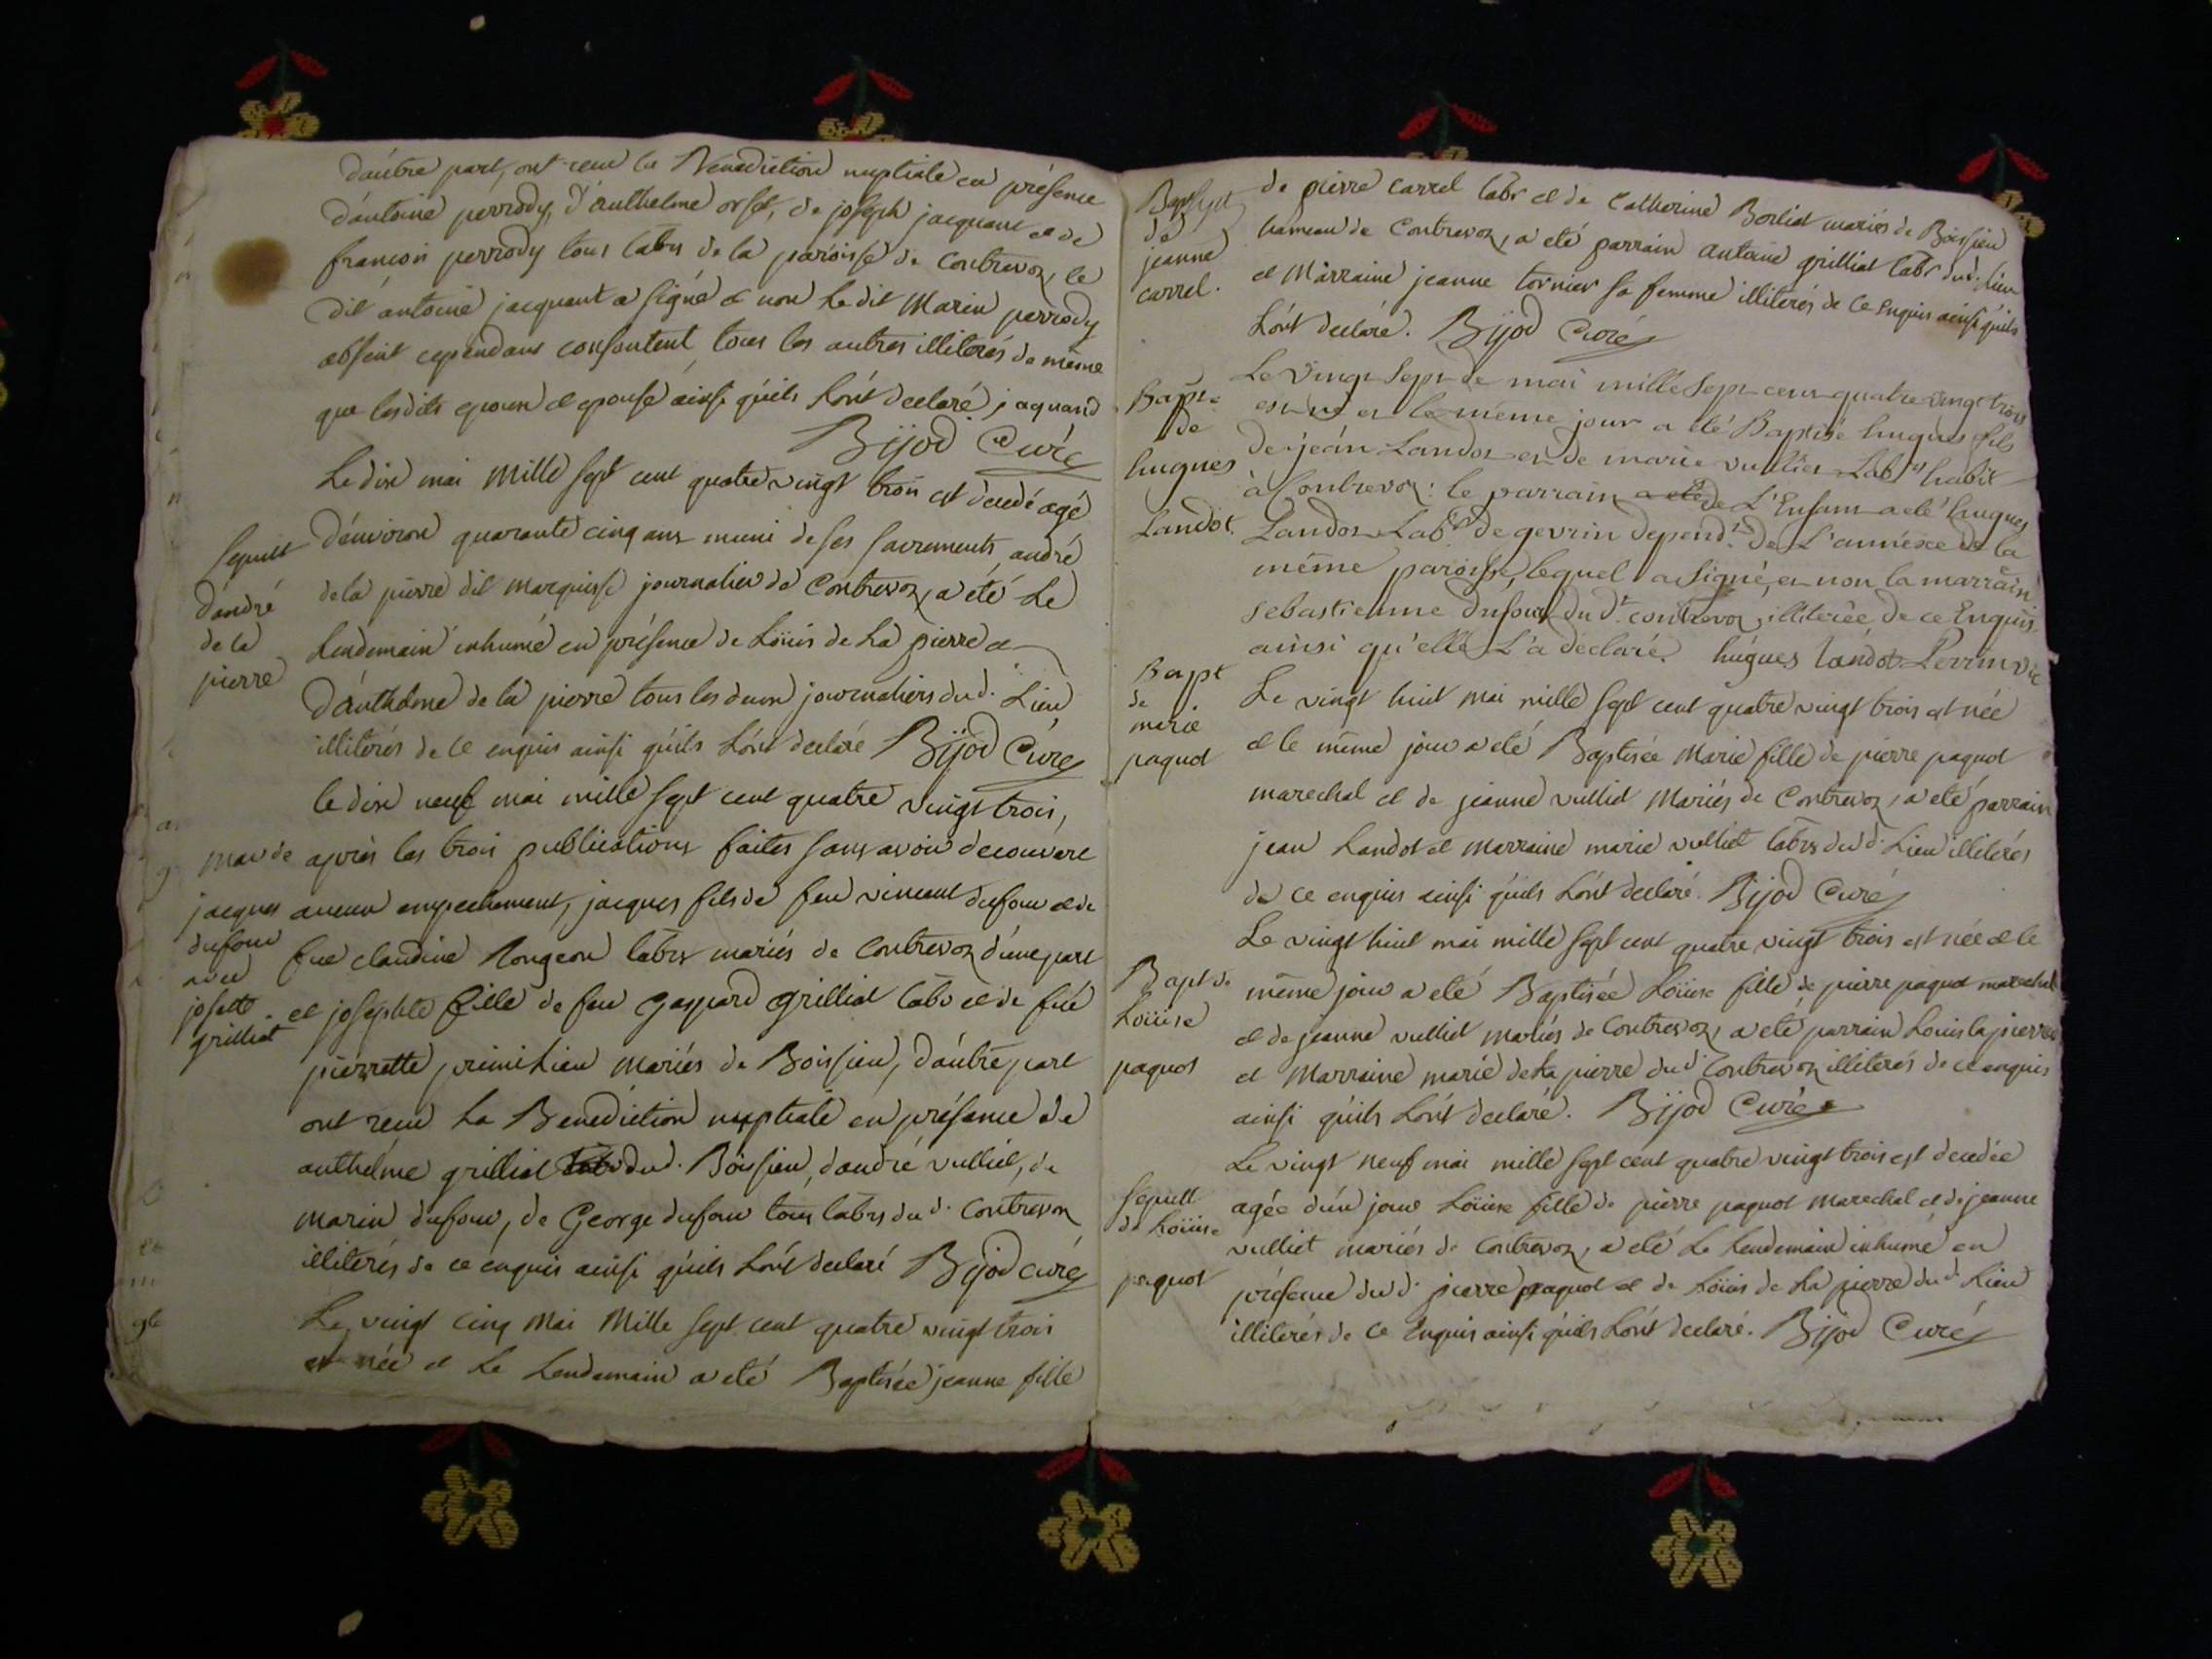 d'autre part, ont recu la Benediction nuptiale en présence
d'antoine perrody, d'anthelme orset, de joseph jacquant et de
francois perrody tous labrs de la paroisse de Contrevoz, le
dit antoine jacquant a signé et non le dit Marin perrody
absent cependant consentent tous les autres illiterés de même
que lesdits epoux et epouse ainsi qu'ils l'ont declaré jaquand
Bijod Curé
Sepult
d'andré
de la
pierre
Le dix mai Mille sept cent quatre vingt trois est decedé agé
d'environ quarante cinq ans muni de ses sacrements, andré
de la pierre dit marquisse journalier de Contrevoz, a été Le
Lendemain inhumé en présence de Loüis de La pierre et
d'anthelme de la pierre tous les deux journaliers dud. Lieu
illiterés de ce enquis ainsi qu'ils L'ont declaré Bijod Curé
mar de
jacques
dufour
avec
josette
grilliat
le dix neuf mai mille sept cent quatre vingt trois,
après les trois publications faites sans avoir decouvert
aucun empechement, jacques fils de feu vincent dufour et de
fue claudine Rongeon labrs mariés de Contrevoz d'une part
et josephte fille de feu gaspard grilliat labr et de fue
pierrette primilieu mariés de Boissieu, d'autre part
ont recu La Benediction nuptiale en présence de
anthelme grilliat labr dud. Boissieu, d'andré vulliet, de
marin dufour, de George dufour tous labrs dud. Contrevoz
illiterés de ce enquis ainsi qu'ils L'ont declaré Bijod curé
Le vingt cinq Mai Mille sept cent quatre vingt trois
est née et Le Lendemain a eté Baptisée jeanne fille
de
jeanne
carrel.
de pierre carrel labr et de Catherine Borliat mariés de Boissieu
hameau de Contrevoz, a eté parrain antoine grilliat labr dud. lieu
et Marraine jeanne tornier sa femme illiterés de ce enquis ainsi qu'ils
L'ont declaré. Bijod Curé
Bapt.
de
hugues
Landot.
Le vingt Sept de mai mille Sept cent quatre vingt trois
est né et le même jour a été Baptisé hugues fils
de jean Landot et de marie vullier Labrs habit
à Contrevoz: le parrain a eté de L'Enfant a eté hugues
Landot Labr de gevrin depend.t de L'annéxe de la
même paroisse, lequel a signé, et non la marraine
sebastienne dufour du dt. contrevoz, illiterée de ce Enquis
ainsi qu'elle L'a declaré. hugues landot Perrin vic
Bapt
de
marie
paquot
Le vingt huit mai mille sept cent quatre vingt trois est née
et le même jour a eté Baptisée Marie fille de pierre paquot
marechal et de jeanne vulliet Mariés de Contrevoz, a eté parrain
jean Landot et marraine marie vulliet labrs dud. Lieu illiterés
de ce enquis ainsi qu'ils L'ont declaré. Bijod Curé
Bapt de
Loüise
paquot
Le vingt huit mai mille sept cent quatre vingt trois est née et le
même jour a eté Baptisée Loüise fille de pierre paquot marechal
et de jeanne vulliet mariés de Contrevoz, a eté parrain Louis la pierre
et Marraine marie de La pierre dud. Contrevoz illiterés de ce enquis
ainsi qu'ils L'ont declaré. Bijod Curé
Sepult
de Loüise
paquot
Le vingt neuf mai mille sept cent quatre vingt trois est decedée
agée d'un jour Loüise fille de pierre paquot Marechal et de jeanne
vulliet mariés de Contrevoz, a eté Le Lendemain inhumé en
présence dud. pierre paquot et de Loüis de La pierre dud. Lieu
illiterés de ce Enquis ainsi qu'ils L'ont declaré. Bijod Curé